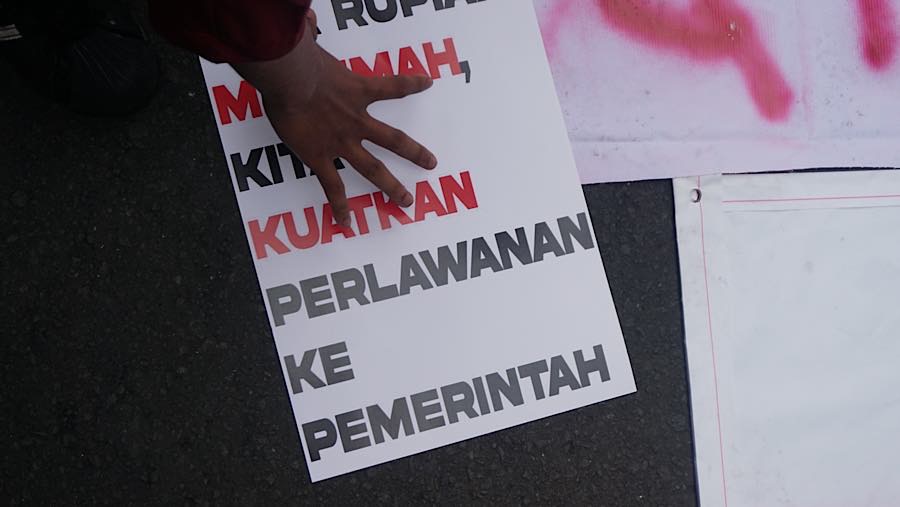 RUPIAH
KITA
KUATKAN
PERLAWANAN
KE
PEMERINTAH